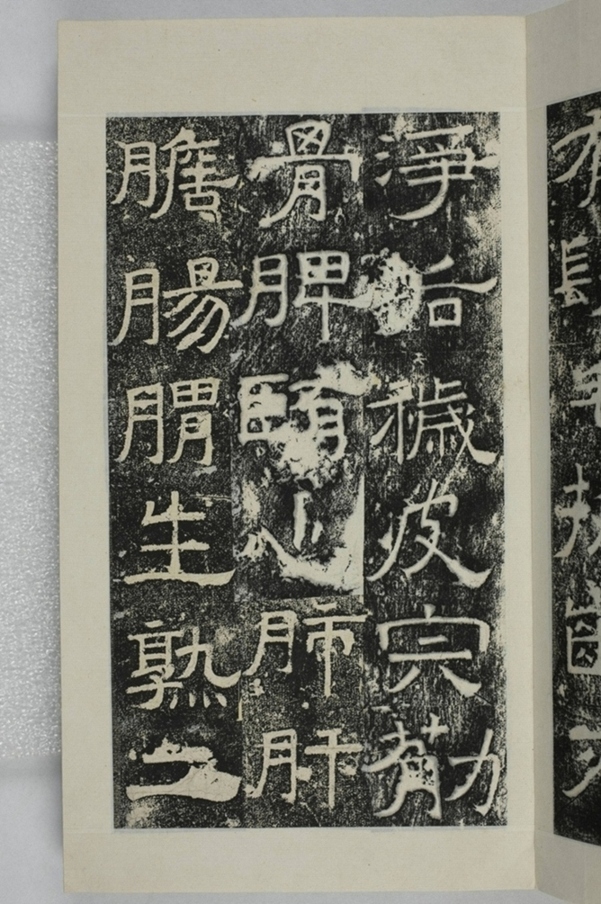 淨垢穢皮宍筋
骨脾腎心肺肝
膽腸胃生熟二